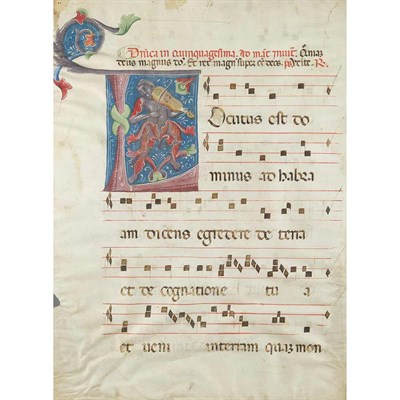 Dñica in quinquagesima. ad mat̃ inuit.
deus magnus dõ. Et rex magnˢ super oẽs deos.
Ocutus est do
minus ad habra
am dicens egredere de terra
et de cognatione tu a
et ueni interram quaz mon